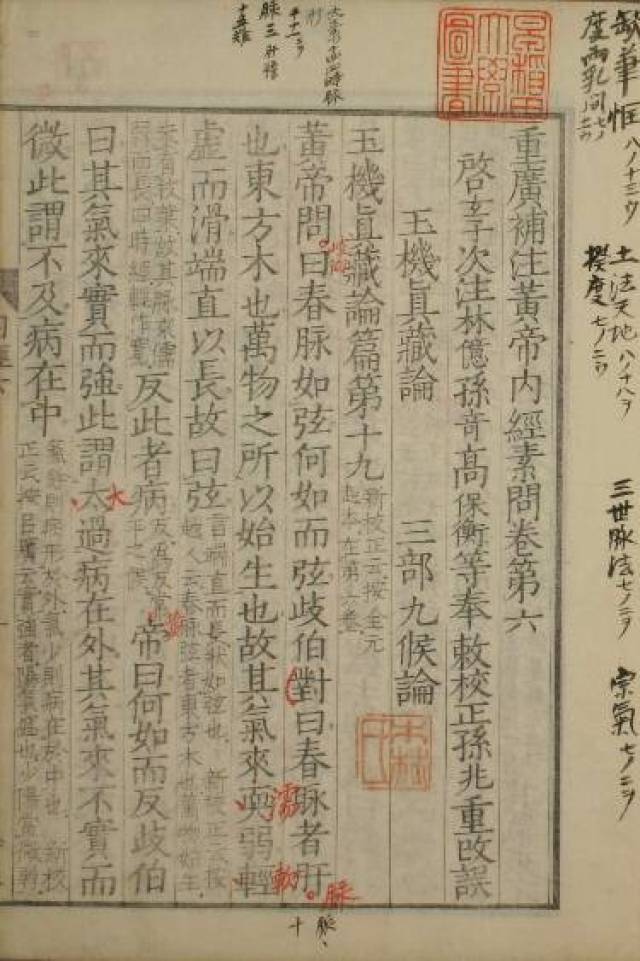 重廣補注黃帝內經素問卷第六
啓玄子次注林億孫奇高保衡等奉敕校正孫兆重改誤
玉機眞藏論
三部九候論
玉機眞藏論篇第十九
新校正云按全元
起本在第六卷
黃帝問曰春脉如弦何如而弦歧伯對曰春脉者肝
也東方木也萬物之所以始生也故其氣來耎弱輕
虛而滑端直以長故曰弦
言端直而長狀如弦也新校正云按
越人云春脉弦者東方木也萬物始生
未有枝葉故其脉來濡
弱而長四時經輕作寬
反此者病
反爲反常
平之候
帝曰何如而反歧伯
曰其氣來實而強此謂太過病在外其氣來不實而
微此謂不及病在中
氣餘則病形於外氣少則病在於中也新校
正云按呂廣云實強者陽氣盛也少陽當微弱
大
濡
軟
脉
早稻田大學圖書
缺筆
三世脉法 七ノ二ヲ
宗氣 七ノ二ヲ
土法天地 八ノ十八ヲ
揆度
十五難